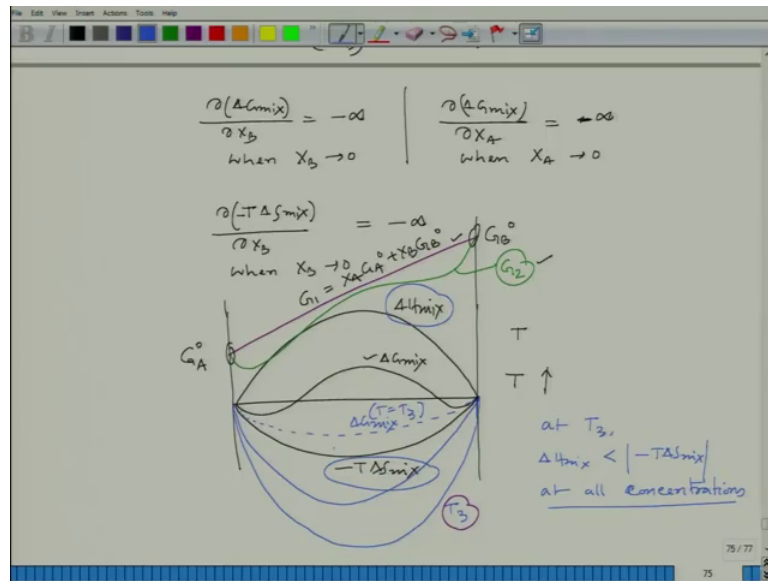 File Edit View Insert Actions Tools Help
∂(ΔGmix)/∂X_B = -∞
when X_B → 0
∂(ΔGmix)/∂X_A = -∞
when X_A → 0
∂(-TΔSmix)/∂X_B = -∞
when X_B → 0
G1 = X_A G_A° + X_B G_B° ✓
G_B°
G2 ✓
ΔHmix
G_A°
T
✓ ΔGmix
T ↑
(T=T3)
ΔGmix
-TΔSmix
T3
at T3,
ΔHmix < |-TΔSmix|
at all concentrations
75 / 77
75